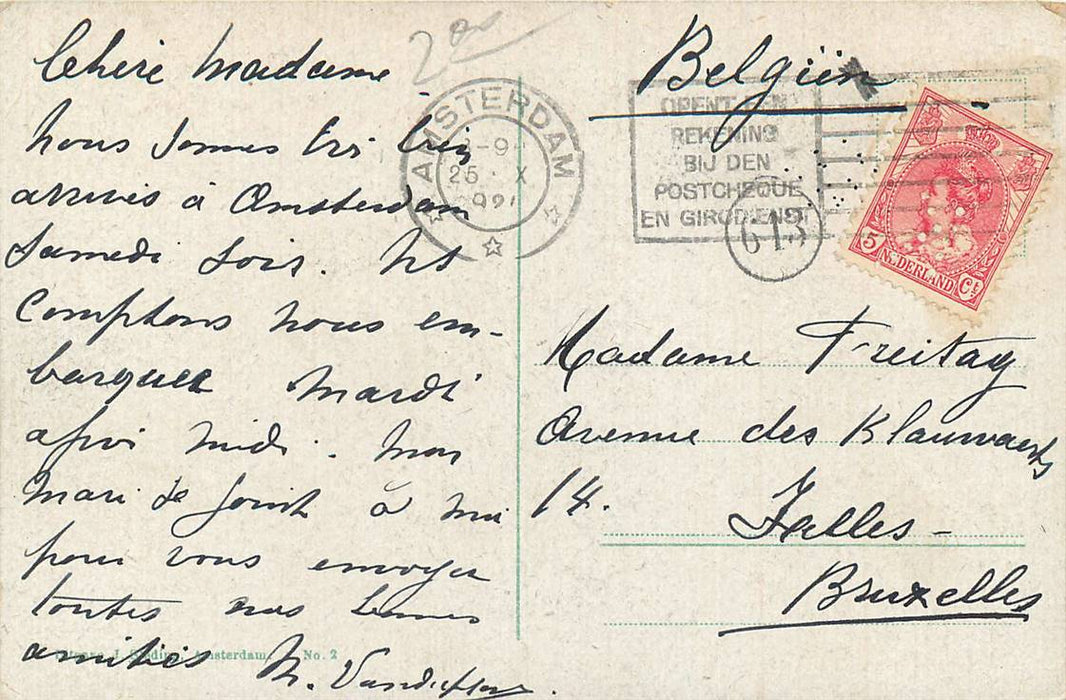 Chère Madame
Nous sommes très bien
arrivés à Amsterdam
Samedi soir. Ns
comptons nous em-
barquer Mardi
après midi. Mon
Mari se joint à moi
pour vous envoyer
toutes nos bonnes
amitiés
Amsterdam. No. 2
2
AMSTERDAM
8-9
25 X
OPENT EEN
REKENING
BIJ DEN
POSTCHEQUE
EN GIRODIENST
613
5 NEDERLAND Ct
Belgiën
Madame Freitag
Avenue des Klauwaerts
14.
Ixelles -
Bruxelles